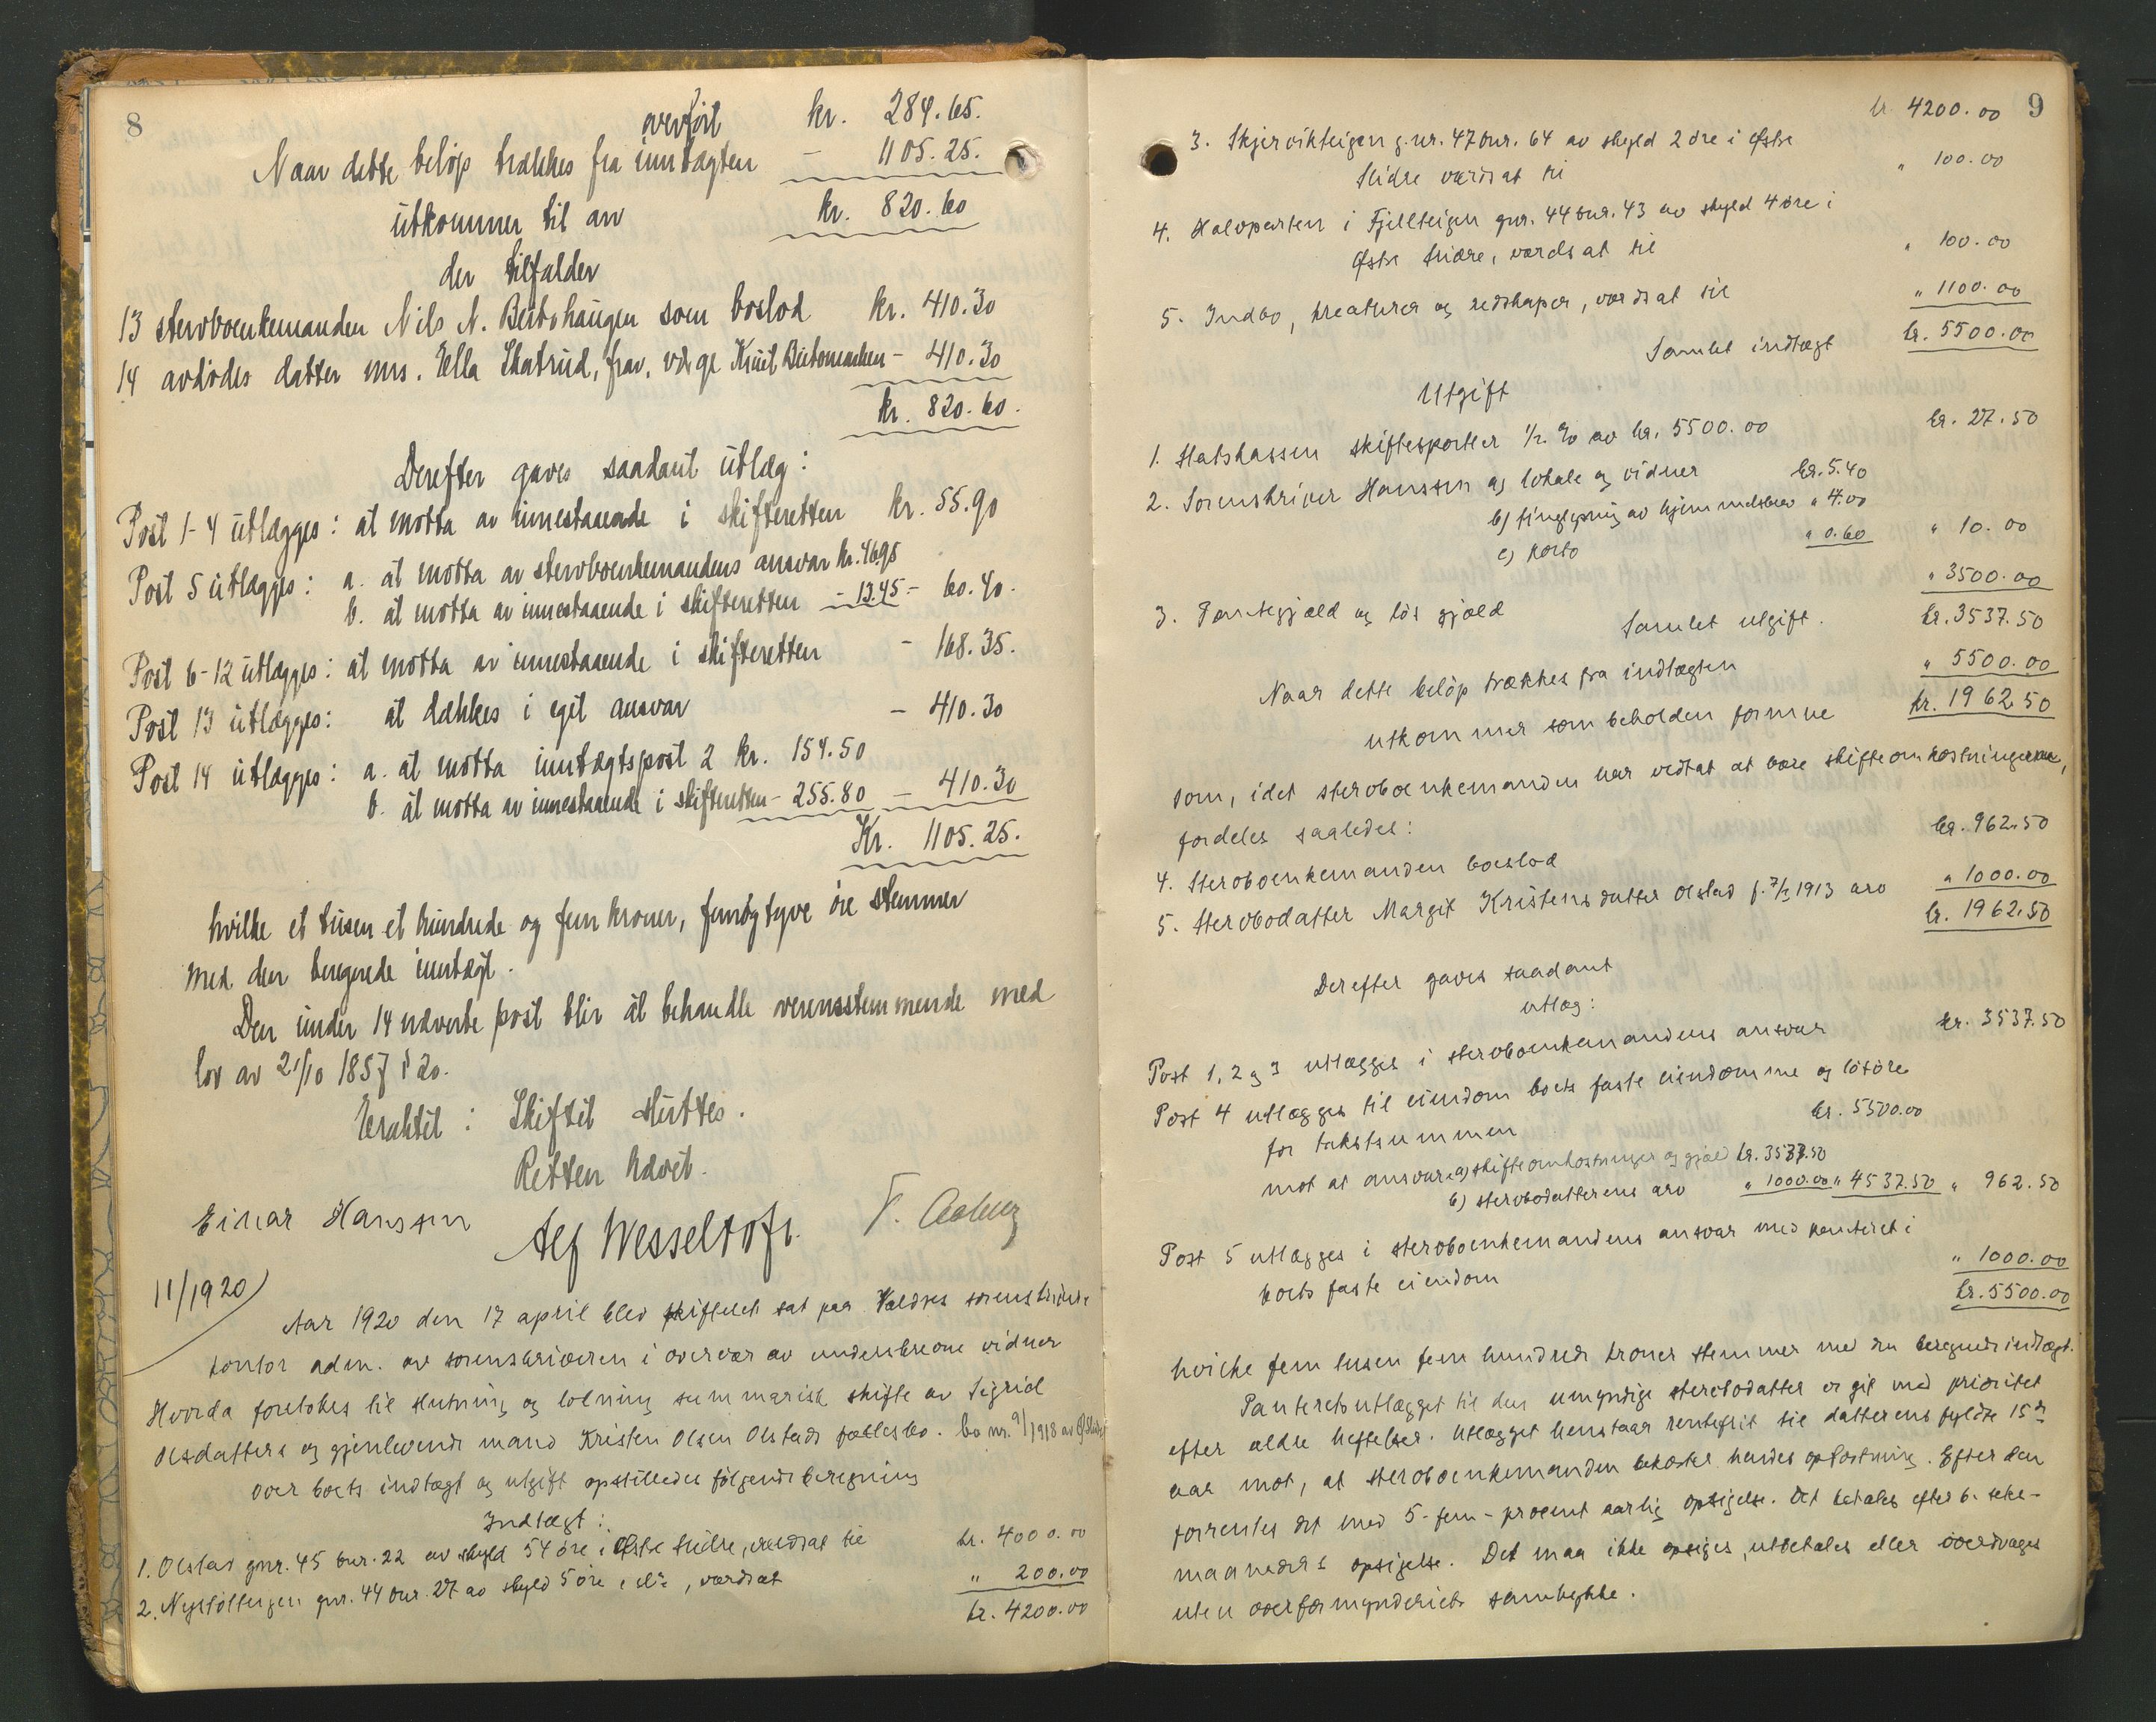 8
overført kr. 284.65.
Naar dette beløp trækkes fra inntægten - 1105.25.
utkommer til arv kr. 820.60
der tilfalder
13 stervboenkemanden Nils N. Beitohaugen som boslod kr. 410.30
14 avdødes datter mrs. Ella Skatrud, frav. værge Knut Beitomarken - 410.30
kr. 820.60.
Derefter gaves saadant utlæg:
Post 1-4 utlægges: at motta av innestaaende i skifteretten kr. 55.90
Post 5 utlægges: a. at motta av stervboenkemandens ansvar kr. 46.95
b. at motta av innestaaende i skifteretten - 13.45 - 60.40.
Post 6-12 utlægges: at motta av innestaaende i skifteretten - 168.35.
Post 13 utlægges: at dækkes i eget ansvar - 410.30
Post 14 utlægges: a. at motta inntægtspost 2 kr. 154.50
b. at motta av innestaaende i skifteretten - 255.80 - 410.30
Kr. 1105.25.
hvilke et tusen et hundrede og fem kroner, femogtyve øre stemmer
med den beregnede inntægt.
Den under 14 nævnte post blir at behandle overensstemmende med
lov av 21/10 1857 § 20.
Eraktet: Skiftet sluttes.
Retten hævet.
Einar Hanssen Alf Wesseltoft.
11/1920
Aar 1920 den 17 april blev skifteret sat paa Valdres sorenskriver
kontor adm. av sorenskriveren i overvær av underskrevne vidner
Hvorda foretokes til slutning og lodning summarisk skifte av Sigrid
Olsdatters og gjenlevende mand Kristen Olsen Olstads fællesbo. bo nr. 9/1918 av Ø. Slidre
over boets indtægt og utgift opstilledes følgende beregning
Indtægt:
1. Olstad gnr. 45 bnr. 22 av skyld 54 øre i Østre Slidre, værdsat til kr. 4000.00
2. gnr. 44 bnr. 27 av skyld 5 øre i do, værdsat " 200.00
kr. 4200.00
kr. 4200.00 9
3. Skjervikteigen g.nr. 47 bnr. 64 av skyld 2 øre i Østre
Slidre værdsat til " 100.00
4. Halvparten i Fjellteigen gnr. 44 bnr. 43 av skyld 4 øre i
Østre Slidre, værdsat til " 100.00
5. Indbo, kreaturer og redskaper, værdsat til " 1100.00
Samlet indtægt kr. 5500.00
Utgift
1. Statskassen skiftesportler 1/2 % av kr. 5500.00 kr. 27.50
2. Sorenskriver Hanssen a) lokale og vidner kr. 5.40
b) tinglysning av hjemmelsbrev " 4.00
c) porto " 0.60 " 10.00
3. Pantegjæld og løs gjæld " 3500.00
Samlet utgift. kr. 3537.50
Naar dette beløp trækkes fra indtægten " 5500.00
utkommer som beholden formue kr. 1962.50
som, idet stervboenkemanden har vedtat at bære skifteomkostningerne,
fordeles saaledes:
4. Stervboenkemanden boeslod kr. 962.50
5. Stervbodatter Margit Kristensdatter Olstad f. 7/1 1913 arv " 1000.00
kr. 1962.50
Derefter gaves saadant
utlæg:
Post 1, 2 og 3 utlægges i stervboenkemandens ansvar kr. 3537.50
Post 4 utlægges til eiendom boets faste eiendomme og løsøre
for takstsummen kr. 5500.00
mot at ansvare a) skifteomkostninger og gjæld kr. 3537.50
b) stervbodatterens arv " 1000.00 " 4537.50 " 962.50
Post 5 utlægges i stervboenkemandens ansvar med panteret i
boets faste eiendom " 1000.00
kr. 5500.00
hvilke fem tusen fem hundrede kroner stemmer med den beregnede indtægt.
Panteretsutlægget til den umyndige stervbodatter er git med prioritet
efter ældre heftelser. Utlægget henstaar rentefrit til datterens fyldte 15 de
aar mot, at stervboenkemanden bekoster hendes opfostring. Efter den
forrentes det med 5 - fem - procent aarlig opsigelse. Det betales efter 6. seks -
maaneders opsigelse. Det maa ikke opsiges, utbetales eller overdrages
uten overformynderiets samtykke.